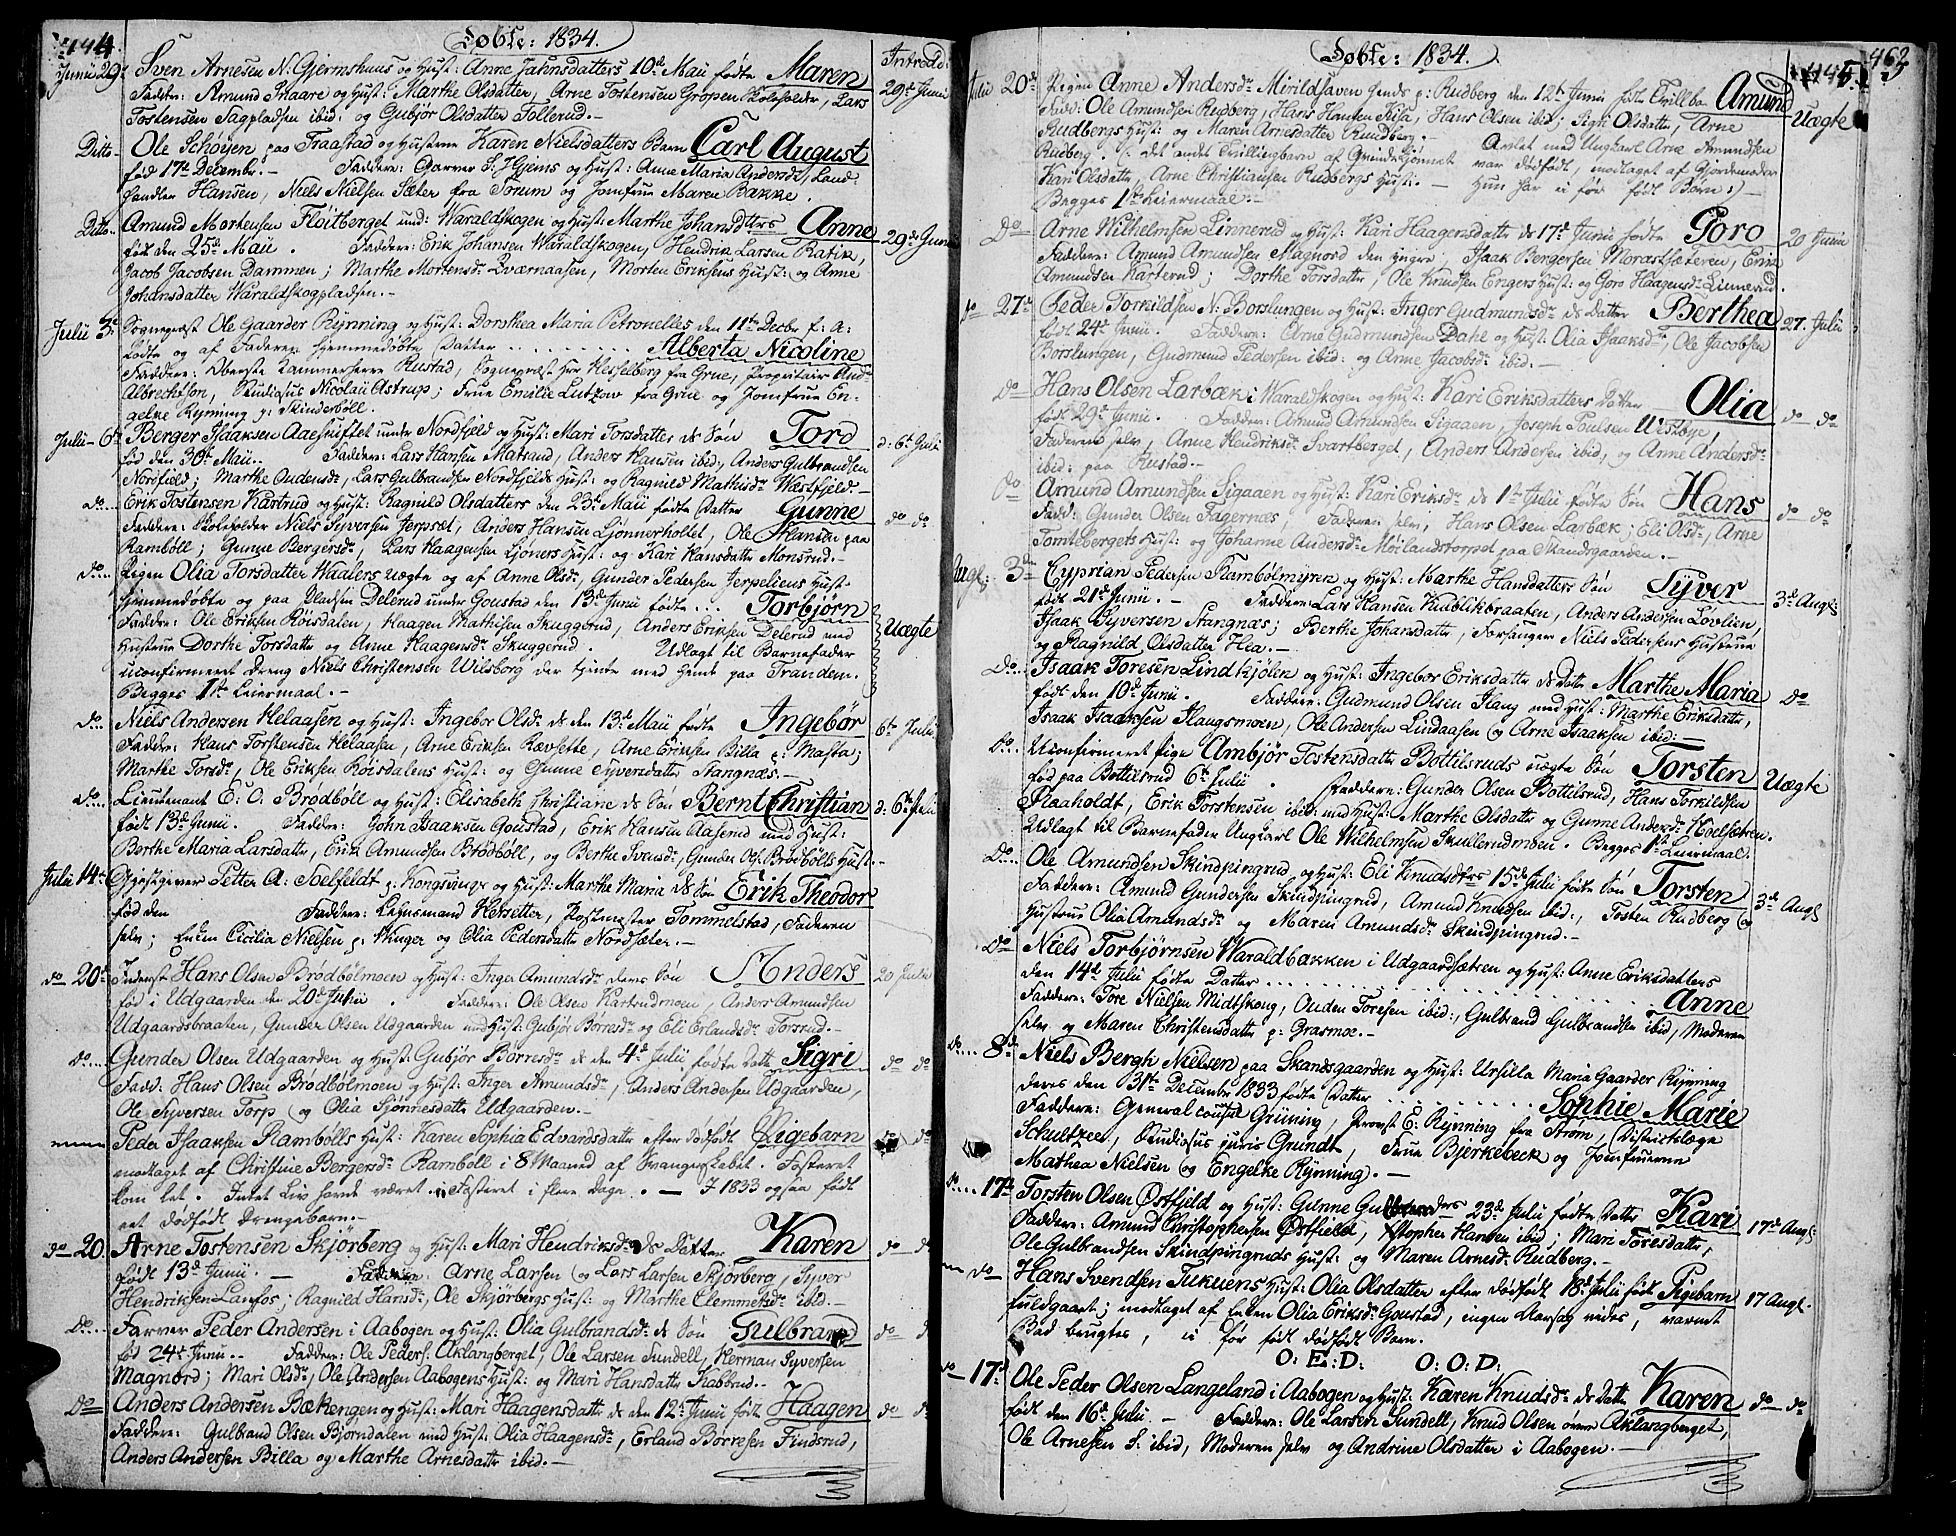 444.
Døbte: 1834.
Introd:
Junii 29.
Sven Arnesen N: Gjermshuus og Hust: Anne Jahnsdatters 10de Maii fødte Maren
29de Junii
Faddere: Amund Snaare og Hust: Marthe Olsdatter, Arne Tostensen Gropen Skoleholder, Lars
Tostensen Sagpladsen ibid: og Gubjør Olsdatter Tollerud.-
Ditto-
Ole Schøyen paa Fraastad og Hustrue Karen Nielsdatters Barn Carl August
fød 17de Decembr.- Faddere: Garver S. Gjems og Hust: Anne Maria Andersdr, Land-
handler Hansen, Niels Nielsen Sæter fra Sorum og Jomfrue Maren Bakke.
Ditto-
Amund Mortensen Fløitberget und: Waraldskogen og Hust: Marthe Johansdtrs Anne
29de Junii
født den 25de Maii. Faddere: Erik Johansen Waraldskogen, Hendrik Larsen Ratik,
Jacob Jacobsen Dammen; Marthe Mortensdr. Qværnaasen, Morten Eriksens Hust: og Anne
Johansdatter Waraldskogpladsen.-
Julii 3de
Sognepræst Ole Gaarder Rynning og Hust: Dorothea Maria Petronelles den 11te Decbr f: a:
fødte og af Faderen hjemmedøbte Datter ........ Alberta Nicoline
Faddere: Oberste Kammerherre Rustad, Sognepræst Hr Hesselberg fra Grue, Proprietair And-
Albrechtson, Studiosus Nicolai Astrup; Frue Emilie Lutzow fra Grue og Jomfrue En-
gelke Rynning p: Skinderbøll.
Julii- 6te
Berger Isaaksen Aaeskiftet under Nordfjeld og Hust: Mari Torsdatter ds Søn Tord
d: 6te Julii
fød den 30te Maii.. Faddere: Lars Hansen Matrand, Anders Hansen ibid:, Anders Gulbrandsen
Nordfjeld; Marthe Audensdr, Lars Gulbrandsen Nordfjelds Hust: og Ragnild Mathisdr Wæstfjeld.-
do...
Erik Tostensen Kartrud og Hust: Ragnild Olsdatters den 23de Maii fødte Datter Gunne
do do
Faddere: Skoleholder Niels Syversen Jerpset, Anders Hansen Ljønnerholtet, Ole Hansen paa
Rambøll; Gunne Bergersdr, Lars Haagensen Ljøners Hust: og Kari Hansdatter Monsrud.-
do....
Pigen Olia Torsdatter Waalers uægte og af Anne Olsdr, Gunder Pedersen Jerpeliens Hust
hjemmedøbte og paa Pladsen Delerud under Goustad den 13de Junii fødte ... Torbjørn
Uægte
Faddere: Ole Eriksen Roisdalen, Haagen Mathisen Skuggerud, Anders Eriksen Delerud med
Hustrue Dorthe Torsdatter og Anne Haagensdr Skuggerud. Udlagt til Barnefader
uconfirmeret Dreng Niels Christensen Wilsborg der tjente med hende paa Frandem.
Begges 1ste Leiermaal.-
do...
Niels Andersen Helaasen og Hust: Ingebor Olsdr ds den 13de Maii fødte Ingebør
6te Julii
Faddere: Hans Torstensen Helaasen, Arne Eriksen Rævsette, Arne Eriksen Billa p: Masta;
Marthe Torsdr, Ole Eriksen Roisdalens Hust: og Gunne Syversdatter Stangnæs.-
do....
Lieutenant E: O: Brødbøll og Hust: Elisabeth Christiane ds Søn Bernt Christian
d: 6te Julii
født 13de Junii. Faddere: John Isaaksen Goustad, Erik Hansen Aaserud med Hust:
Berthe Maria Larsdatter, Erik Amundsen Brødbøll, og Berthe Svensdr, Gunder Ols: Brødbølls Hust.-
Julii 14de
Gjæstgiver Petter A: Soelfeldt p: Kongsvinger og Hust: Marthe Maria ds Søn Erik Theodor
fød den Faddere: Lensmand Hersetter, Postmester Tommelstad, Faderen
selv; Enken Cicilia Nielsen p: Vinger og Olia Pedersdatter Nordsæter.-
do 20de
Inderst Hans Olsen Brødbølmoen og Hust: Inger Amundsdr deres Søn Anders
20 Julii
fød i Udgaarden den 20de Julii. Faddere: Ole Olsen Kartrudmoen, Anders Amundsen
Udgaardsbraaten, Gunder Olsen Udgaarden med Hust: Gubjør Børresdr og Eli Erlandsdr Torsrud.-
do....
Gunder Olsen Udgaarden og Hust: Gubjør Børresdr ds den 4de Julii fødte Datter Sigri
do do
Fadd: Hans Olsen Brødbølmoen og Hust: Inger Amundsdr, Anders Andersen Udgaarden,
Ole Syversen Torp og Olia Sjønnesdatter Udgaarden.-
Peder Isaaksen Rambølls Hust: Karen Sophia Edvardsdatter efter dødfødt Pigebarn
do do
modtaget af Christine Bergersdr Rambøll i 8 Maaned af Svangerskabet. Fosteret
kom let. Intet Liv havde været i Fosteret i flere Dage.- I 1833 ogsaa født
eet dødfødt Drengebarn.-
do 20
Arne Tostensen Skjørberg og Hust: Mari Hendriksdr ds Datter Karen
do
født 13de Junii.- Faddere: Arne Larsen og Lars Larsen Skjørberg, Syver
Hendriksen Lanfos; Ragnild Hansdr, Ole Skjørbergs Hust: og Marthe Clemmetsdr ibid.-
do....
Farver Peder Andersen i Aabogen og Hust: Olia Gulbrandsdr ds Søn Gulbrand
do
fød 24de Junii.. Faddere: Ole Peders: Aklangberget, Ole Larsen Sundell, Herman Syversen
Magnord; Mari Olsdr, Ole Andersen Aabogens Hust: og Mari Hansdatter Krabbrud.-
do
Anders Andersen Bækengen og Hust: Mari Haagensdatter ds den 12te Junii født Haagen
do
Faddere: Gulbrand Olsen Bjorndalen med Hust: Olia Haagensdr, Erland Børresen Findsrud,
Anders Andersen Billa og Marthe Arnesdatter ibid.-
Døbte: 1834.
445.
463
Julii 20de
Pigen Anne Andersdr Mirildhaven hends p: Rudberg den 12te Junii født Tvilleba Amund
Uægte
Fadd: Ole Amundsen Rudberg, Hans Hansen Risa, Hans Olsen ibid; Sigri Olsdatter, Arne
Rudbergs Hust: og Maren Arnesdatter Rudberg.- Avlet med Ungkarl Arne Amundsen
Rudberg. (: det andet Tvillingbarn af Qvindekjønnet var dødfødt, modtaget af Gjordemoder
Kari Olsdatter, Arne Christiansen Rudbergs Hust:.- Hun har ei før født Børn :)-
Begges 1ste Leiermaal.-
Do
Arne Wilhelmsen Linnerud og Hust: Kari Haagensdatter ds 17de Junii fødte Goro
20 Junii
Faddere: Amund Amundsen Magnord den yngre, Isaak Bergersen Morastsæteren, Erik
Amundsen Karterud; Dorthe Torsdatter, Ole Knudsen Engers Hust: og Goro Haagensdr Linnerud.
do 27de
Peder Torkildsen N: Borslungen og Hust: Inger Gudmundsdr ds Datter Berthea
27. Julii
født 24de Junii. Faddere: Arne Gudmundsen Dake og Hust: Olia Isaaksdr, Ole Jacobsen
Borslungen, Gudmund Pedersen ibid: og Anne Jacobsdr ibid:.-
do
Hans Olsen Larbæk i Waraldskogen og Hust: Kari Eriksdatters Datter Olia
do do
født 29de Junii. Faddere: Amund Amundsen Sigaaen, Joseph Poulsen Westbye,
Faderen selv, Anne Hendriksdr Svartberget, Anders Andersen ibid, og Anne Andersdr
ibid: paa Rustad.-
do
Amund Amundsen Sigaaen og Hust: Kari Eriksdr ds 1ste Julii fødte Søn Hans
do do
Fadd: Gunder Olsen Fagernæs, Faderen selv, Hans Olsen Larbæk; Eli Olsdr, Arne
Tomtebergets Hust: og Johanne Andersdr Mølandstorpet paa Skandsgaarden.-
Augl: 3de
Cyprian Pedersen Rambølmyren og Hust: Marthe Hansdatters Søn Syver
3de Augl:
født 21de Junii.- Faddere: Lars Hansen Knublikbraaten, Anders Andersen Løvlien,
Isaak Syversen Stangnæs; Berthe Johansdatter, Forsanger Niels Pedersens Hustrue
og Ragnild Olsdatter Hea.-
Do..
Isaak Toresen Lindkjølen og Hust: Ingebor Eriksdatter ds Datter Marthe Maria
Do
født den 10de Junii. Faddere: Gudmund Olsen Haug med Hust: Marthe Eriksdatter,
Isaak Isaaksen Haugsmoen, Ole Andersen Lindaasen og Arne Isaaksen ibid:-
Do..
Uconfirmeret Pige Ambjør Tostensdatter Bottilsruds uægte Søn Torsten
Uægte
fød paa Bottilsrud 6te Julii. Faddere: Gunder Olsen Bottilsrud, Hans Torkildsen
Raaholdt, Erik Torstensen ibid: med Hust: Marthe Olsdatter og Gunne Andersdr Hoelsætren.
Udlagt til Barnefader Ungkarl Ole Wilhelmsen Skullerudmoen. Begges 1ste Leiermaal.
Do...
Ole Amundsen Skindpingrud og Hust: Eli Knudsdtrs 15de Julii fødte Søn Torsten
3de Augl
Faddere: Amund Gundersen Skindpingrud, Amund Knudsen ibid:, Tosten Rudberg og
Hustrue Olia Amundsdr og Maren Amundsdr Skindpingrud.-
Do
Niels Torbjørnsen Waraldbakken i Udgaardsætren og Hust: Anne Eriksdatters
den 14de Julii fødte Datter ........ Anne
Faddere: Tore Nielsen Midtskoug, Auden Toresen ibid:, Gulbrand Gulbrandsen ibid, Moderen
selv og Maren Christensdatter p: Grasmoe.-
do.... 8de
Niels Bergh Nielsen paa Skandsgaarden og Hust: Ursilla Maria Gaarder Rynning
deres den 31te December 1833 fødte Datter ........ Sophie Marie
Faddere: Generalconsul Grüning, Provst E: Rynning fra Strøm, Districtslæge
Schultzee, Studiosus juris Grundt, Frue Bjerkebeck og Jomfruerne
Mathea Nielsen og Engelke Rynning.-
do.... 17de
Torsten Olsen Østfjeld og Hust: Gunne 23de Julii fødte Datter Kari
17de Augl:
Faddere: Amund Christophersen Østfjeld, Xstopher Hansen ibid; Mari Toresdatter,
Ole Gulbrandsen Skindpingruds Hust: og Maren Arnesdr Rudberg.-
do
Hans Svendsen Tukuens Hust: Olia Olsdatter efter dødfødt 18de Julii født Pigebarn
17 Augl.
fuldgaaet; modtaget af Enken Olia Eriksdr Goustad, ingen Aarsag vides, varmt
Bad brugtes, ei før født dødfødt Barn.
O: E: D: O: O: D:
do 17de
Ole Peder Olsen Langeland i Aabogen og Hust: Karen Knudsdr ds Datter Karen
do do
født den 16de Julii.- Faddere: Ole Larsen Sundell, Knud Olsen øvre Aklangberget,
Ole Arnesen S: ibid, Moderen selv og Andrine Olsdatter i Aabogen.-